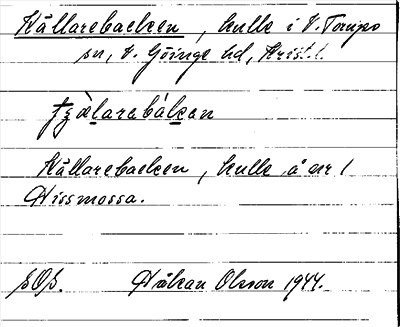 Källarebacken, kulle i V. Torups
sn, V. Göinge hd, Krist. l.
källarebacken, kulle å nr 1
Hissmossa.
SOS. Håkan Olsson 1944.